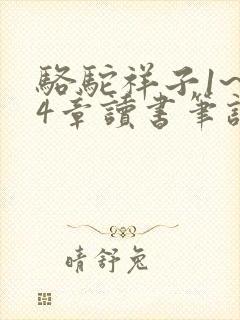 駱駝祥子1~
4章讀書筆記
晴舒兔